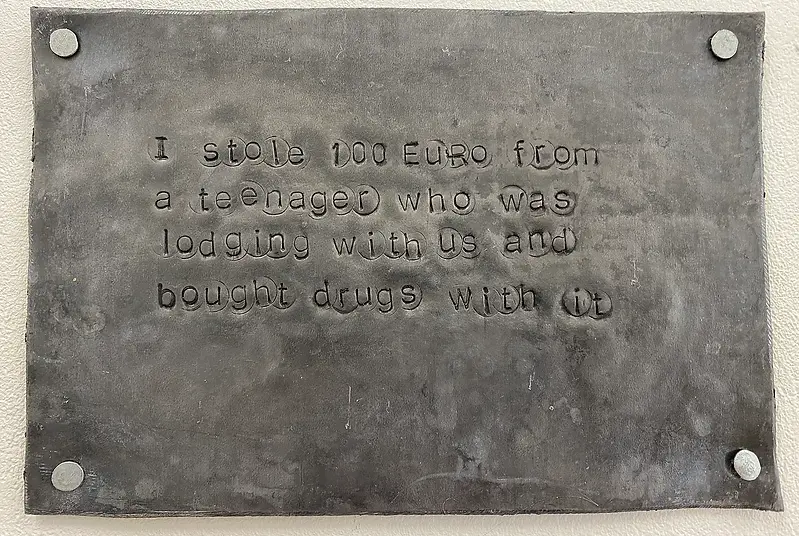 I stole 100 EuRo from
a teenager who was
lodging with us and
bought drugs with it